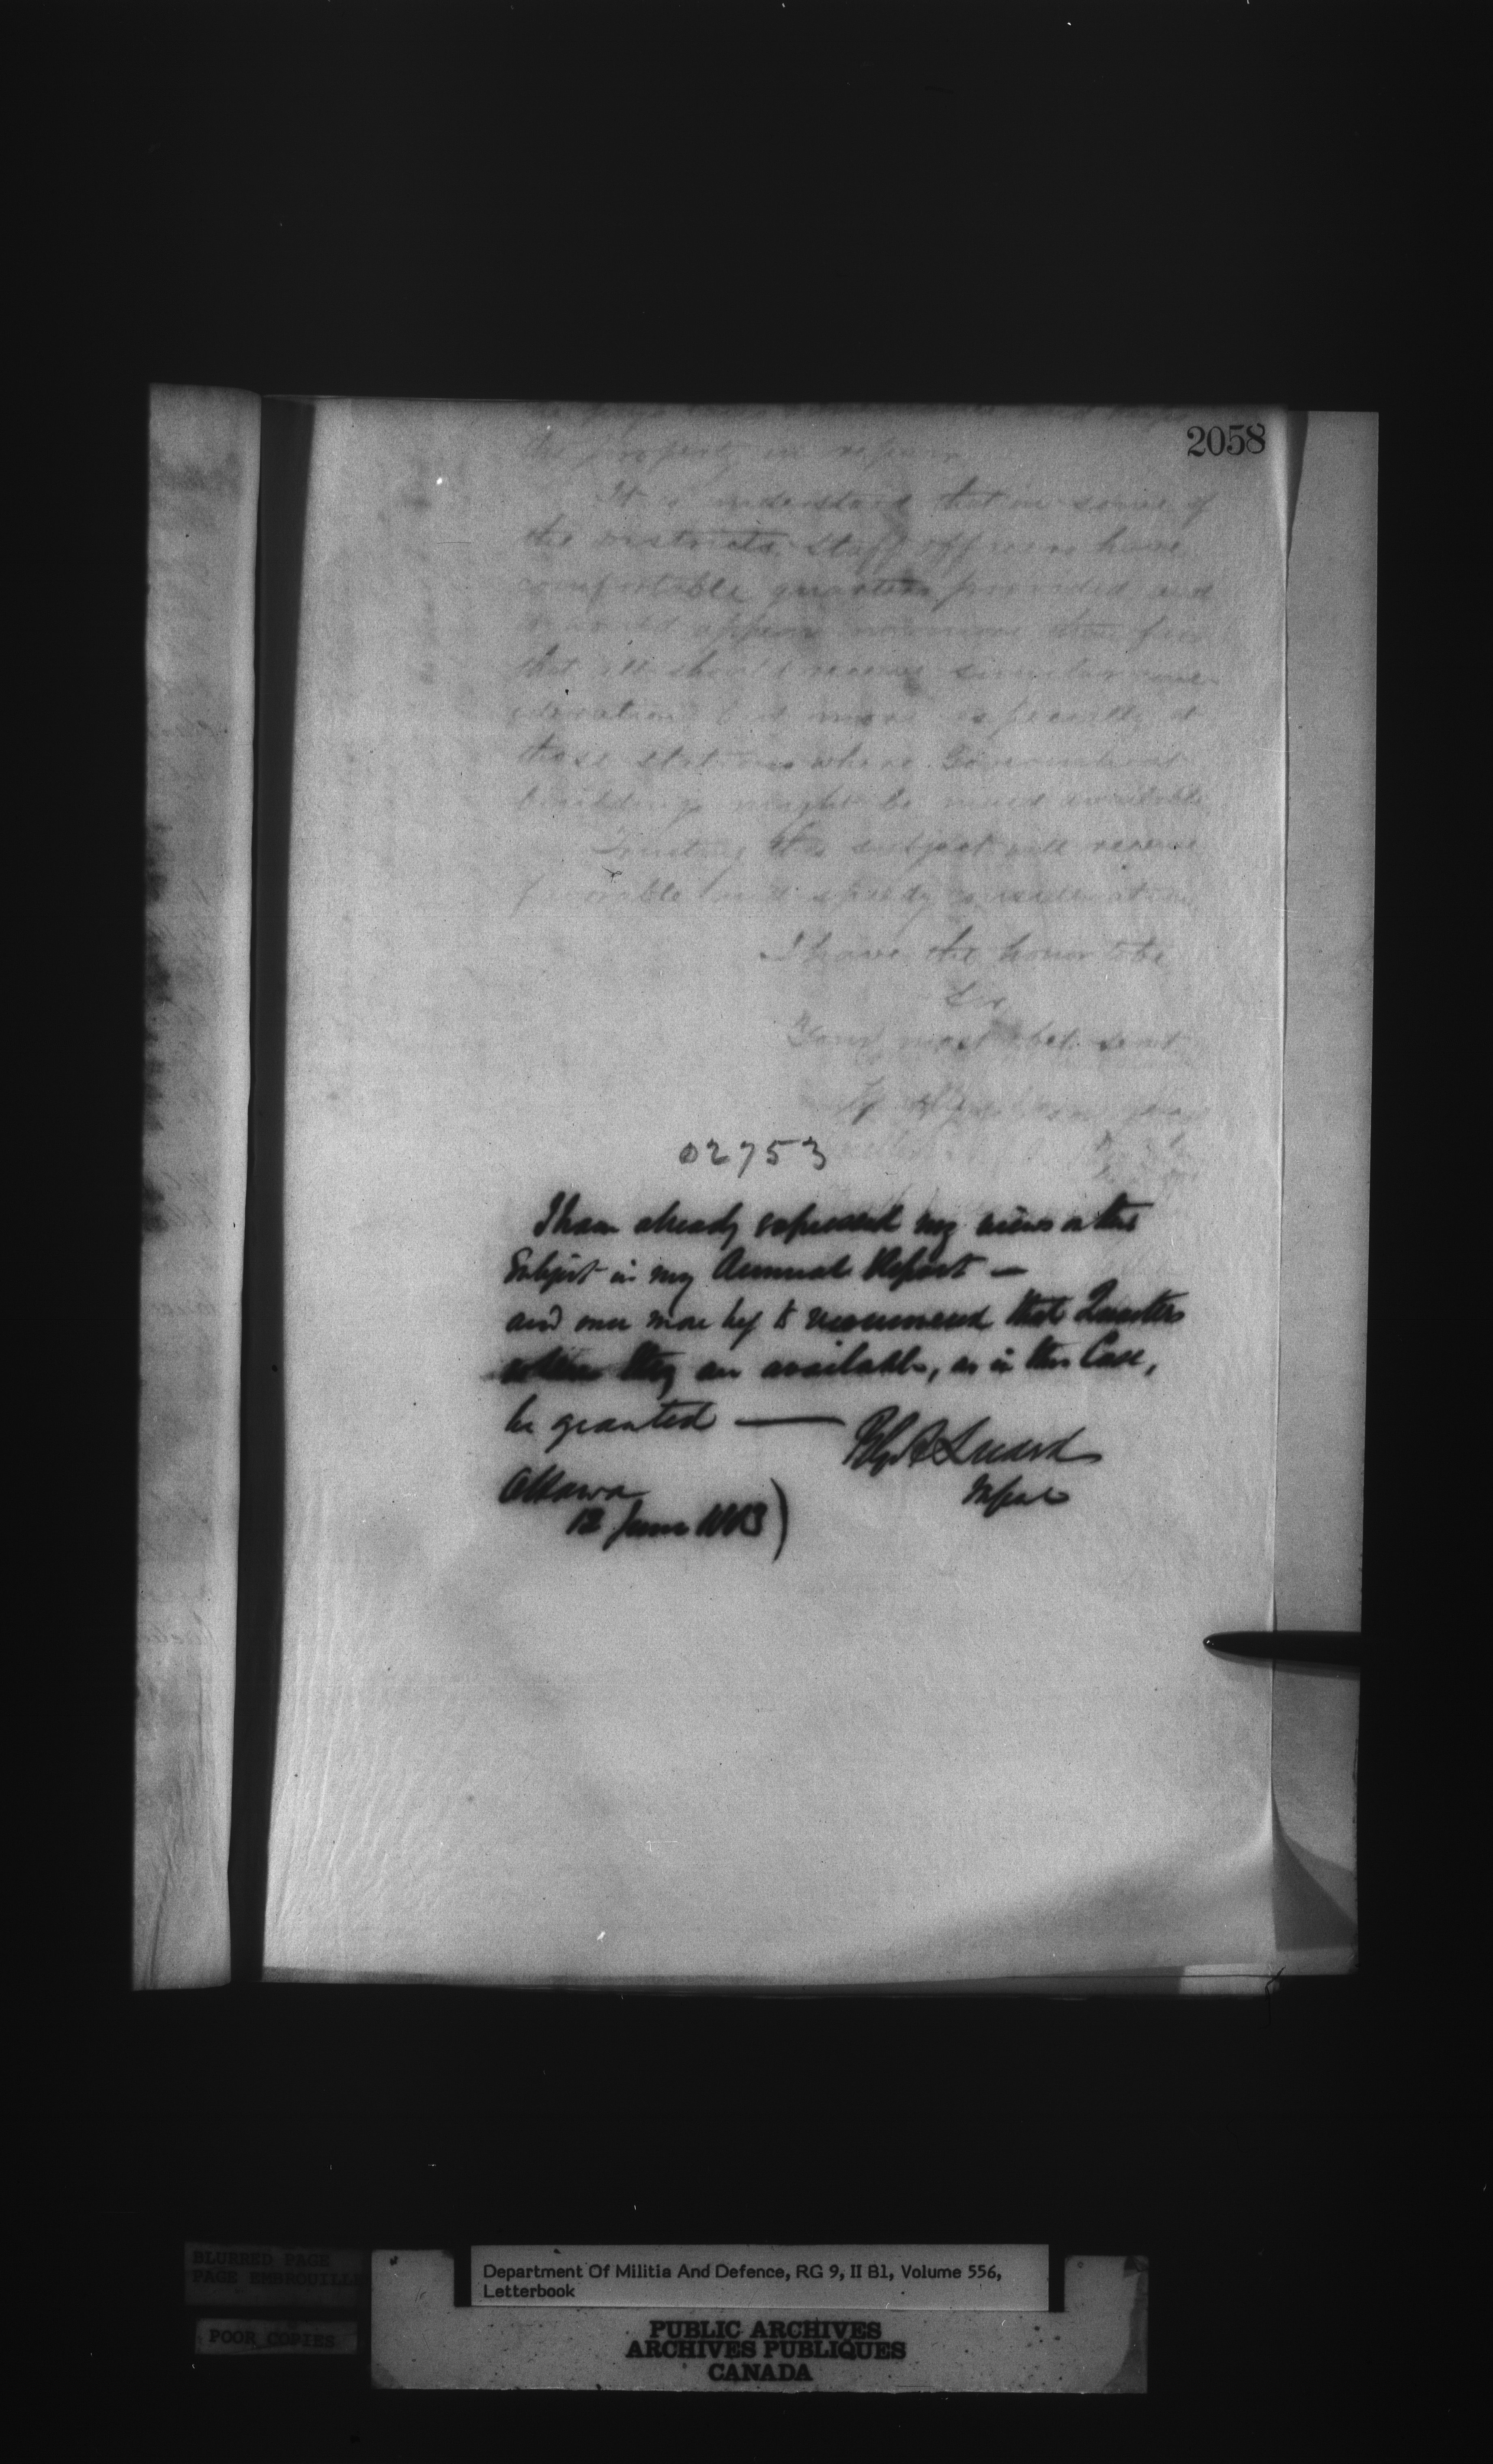 2058
the property in repair
It is understood that in some of
the districts staff officers have
comfortable quarters provided and
it would appear no more than fair
that all should receive similar consi-
deration but more especially at
those stations where Government
buildings might be made available
Trusting this subject will receive
favorable and speedy consideration
I have the honor to be
Sir
Your most obed. servt
02753
I have already expressed my views on this
Subject in my Annual Report —
and once more beg to recommend that Quarters
where they are available, as in this Case,
be granted —
Luard
M Genl
Ottawa
12 June 1883)
BLURRED PAGE
PAGE EMBROUILLEE
POOR COPIES
Department Of Militia And Defence, RG 9, II B1, Volume 556,
Letterbook
PUBLIC ARCHIVES
ARCHIVES PUBLIQUES
CANADA